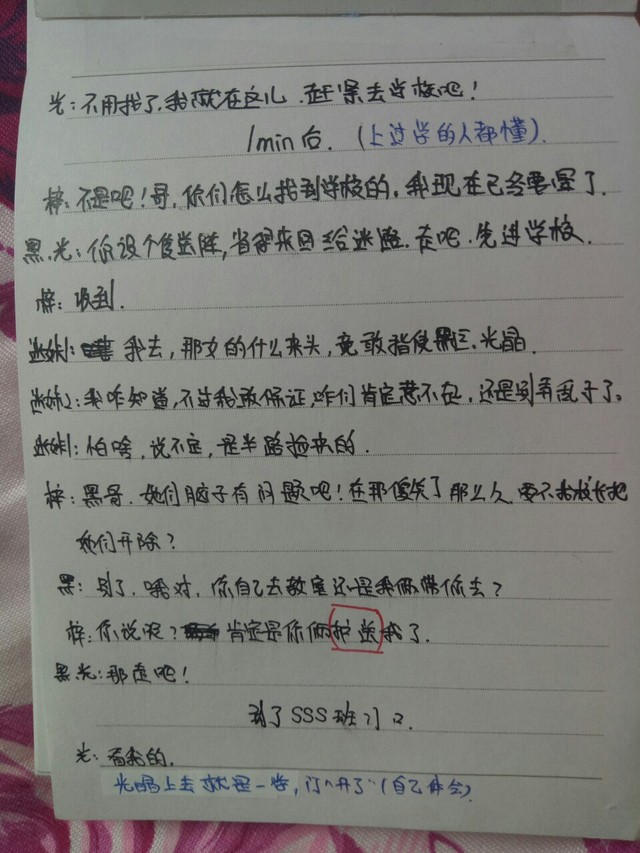 光：不用找了，我就在这儿，赶紧去学校吧！
1min后。（上过学的人都懂）.
梓：不是吧！哥，你们怎么找到学校的，我现在已经要晕了.
黑.光：你设个传送阵，省得来回给迷路.走吧.先进学校.
梓：收到.
迷妹1：我去，那女的什么来头，竟敢指使黑三.光晶.
迷妹2：我咋知道，不过我敢保证，咱们肯定惹不起，还是别弄乱子了。
迷妹1：怕啥，说不定，是半路抢来的.
梓：黑哥.她们脑子有问题吧！在那傻笑了那么久，要不找校长把
她们开除？
黑：别了.哦对，你自己去教室还是我俩带你去？
梓：你说呢？肯定是你俩护送我了.
黑光：那走吧！
到了SSS班门口.
光：看我的.
光晶上去就是一拳，门"开了"（自己体会）